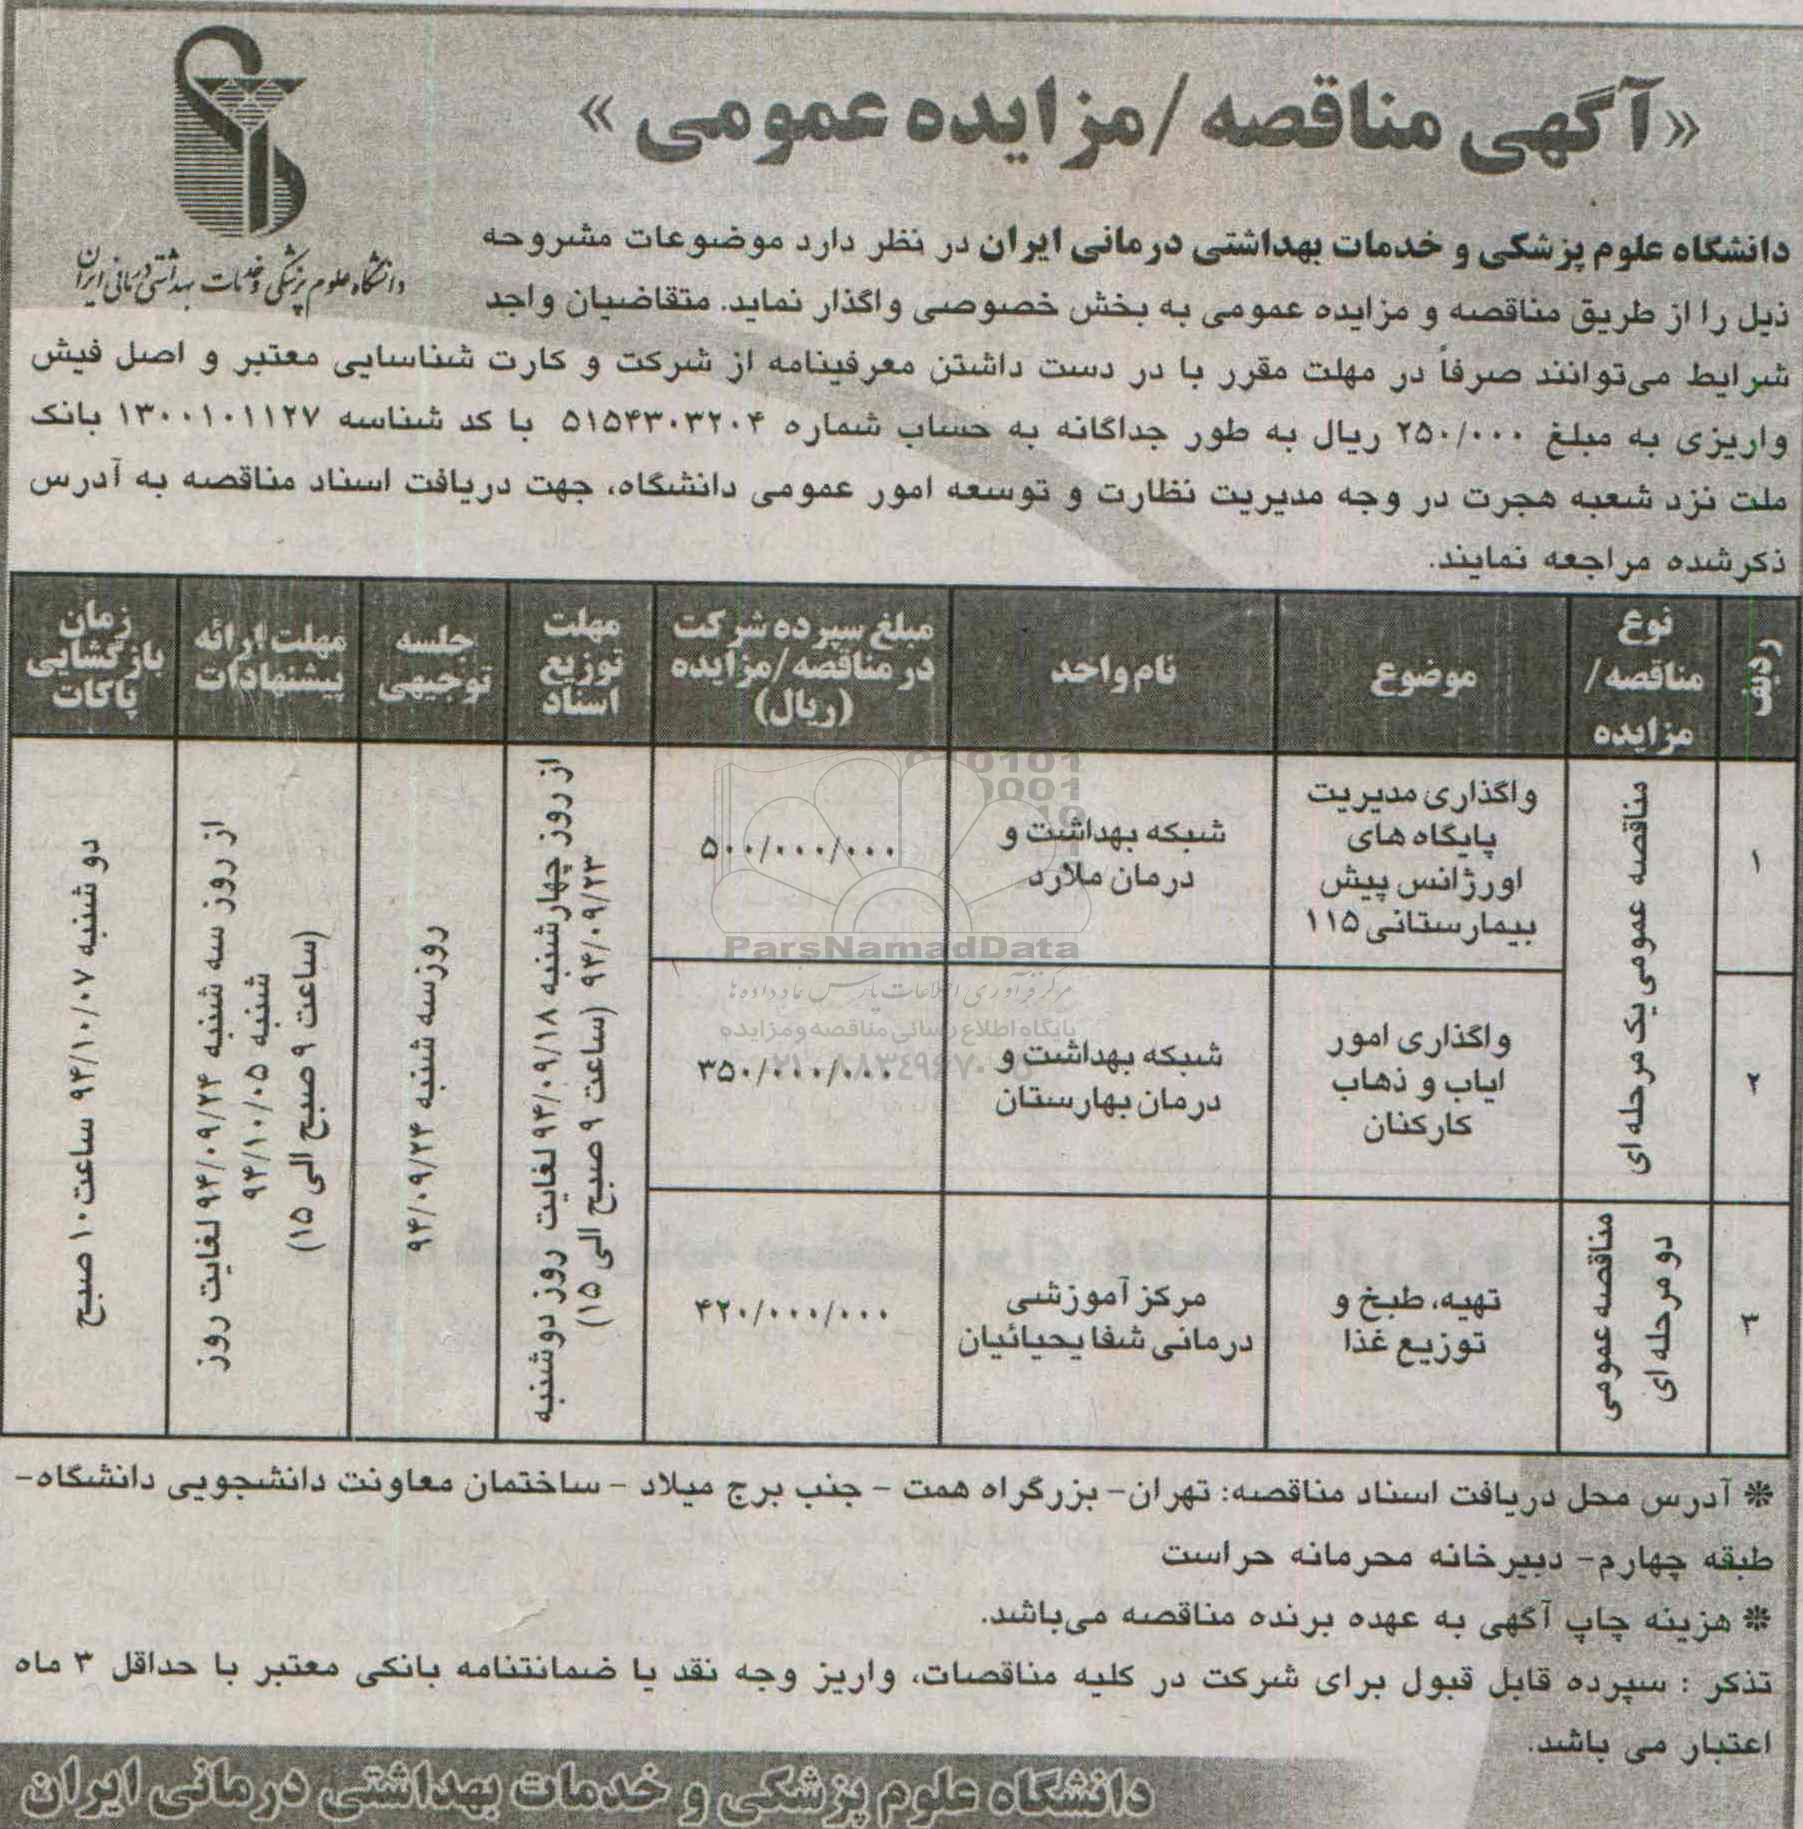 «آگهی مناقصه /مزایده عمومی »
دانشگاه علوم پزشکی و خدمات بهداشتی درمانی ایران
دانشگاه علوم پزشکی و خدمات بهداشتی درمانی ایران در نظر دارد موضوعات مشروحه
ذیل را از طریق مناقصه و مزایده عمومی به بخش خصوصی واگذار نماید. متقاضیان واجد
شرایط می‌توانند صرفاً در مهلت مقرر با در دست داشتن معرفینامه از شرکت و کارت شناسایی معتبر و اصل فیش
واریزی به مبلغ ۲۵۰/۰۰۰ ریال به طور جداگانه به حساب شماره ۵۱۵۴۳۰۳۲۰۴ با کد شناسه ۱۳۰۰۱۰۱۱۲۷ بانک
ملت نزد شعبه هجرت در وجه مدیریت نظارت و توسعه امور عمومی دانشگاه، جهت دریافت اسناد مناقصه به آدرس
ذکرشده مراجعه نمایند.
ردیف
نوع
مناقصه/
مزایده
موضوع
نام واحد
مبلغ سپرده شرکت
در مناقصه/مزایده
(ریال)
مهلت
توزیع
اسناد
جلسه
توجیهی
مهلت ارائه
پیشنهادات
زمان
بازگشایی
پاکات
۱
مناقصه عمومی یک مرحله ای
واگذاری مدیریت
پایگاه های
اورژانس پیش
بیمارستانی ۱۱۵
شبکه بهداشت و
درمان ملارد
۵۰۰/۰۰۰/۰۰۰
از روز چهارشنبه ۹۴/۰۹/۱۸ لغایت روز دوشنبه
۹۴/۰۹/۲۳ (ساعت ۹ صبح الی ۱۵)
روزسه شنبه ۹۴/۰۹/۲۴
از روز سه شنبه ۹۴/۰۹/۲۴ لغایت روز
شنبه ۹۴/۱۰/۰۵
(ساعت ۹ صبح الی ۱۵)
دو شنبه ۹۴/۱۰/۰۷ ساعت ۱۰ صبح
۲
واگذاری امور
ایاب و ذهاب
کارکنان
شبکه بهداشت و
درمان بهارستان
۳۵۰/۰۰۰/۰۰۰
۳
مناقصه عمومی
دو مرحله ای
تهیه، طبخ و
توزیع غذا
مرکز آموزشی
درمانی شفا یحیائیان
۴۲۰/۰۰۰/۰۰۰
ParsNamadData
مرکز فرآوری اطلاعات پارس نماد داده ها
پایگاه اطلاع رسانی مناقصه و مزایده
❊ آدرس محل دریافت اسناد مناقصه: تهران- بزرگراه همت - جنب برج میلاد - ساختمان معاونت دانشجویی دانشگاه-
طبقه چهارم- دبیرخانه محرمانه حراست
❊ هزینه چاپ آگهی به عهده برنده مناقصه می‌باشد.
تذکر : سپرده قابل قبول برای شرکت در کلیه مناقصات، واریز وجه نقد یا ضمانتنامه بانکی معتبر با حداقل ۳ ماه
اعتبار می باشد.
دانشگاه علوم پزشکی و خدمات بهداشتی درمانی ایران